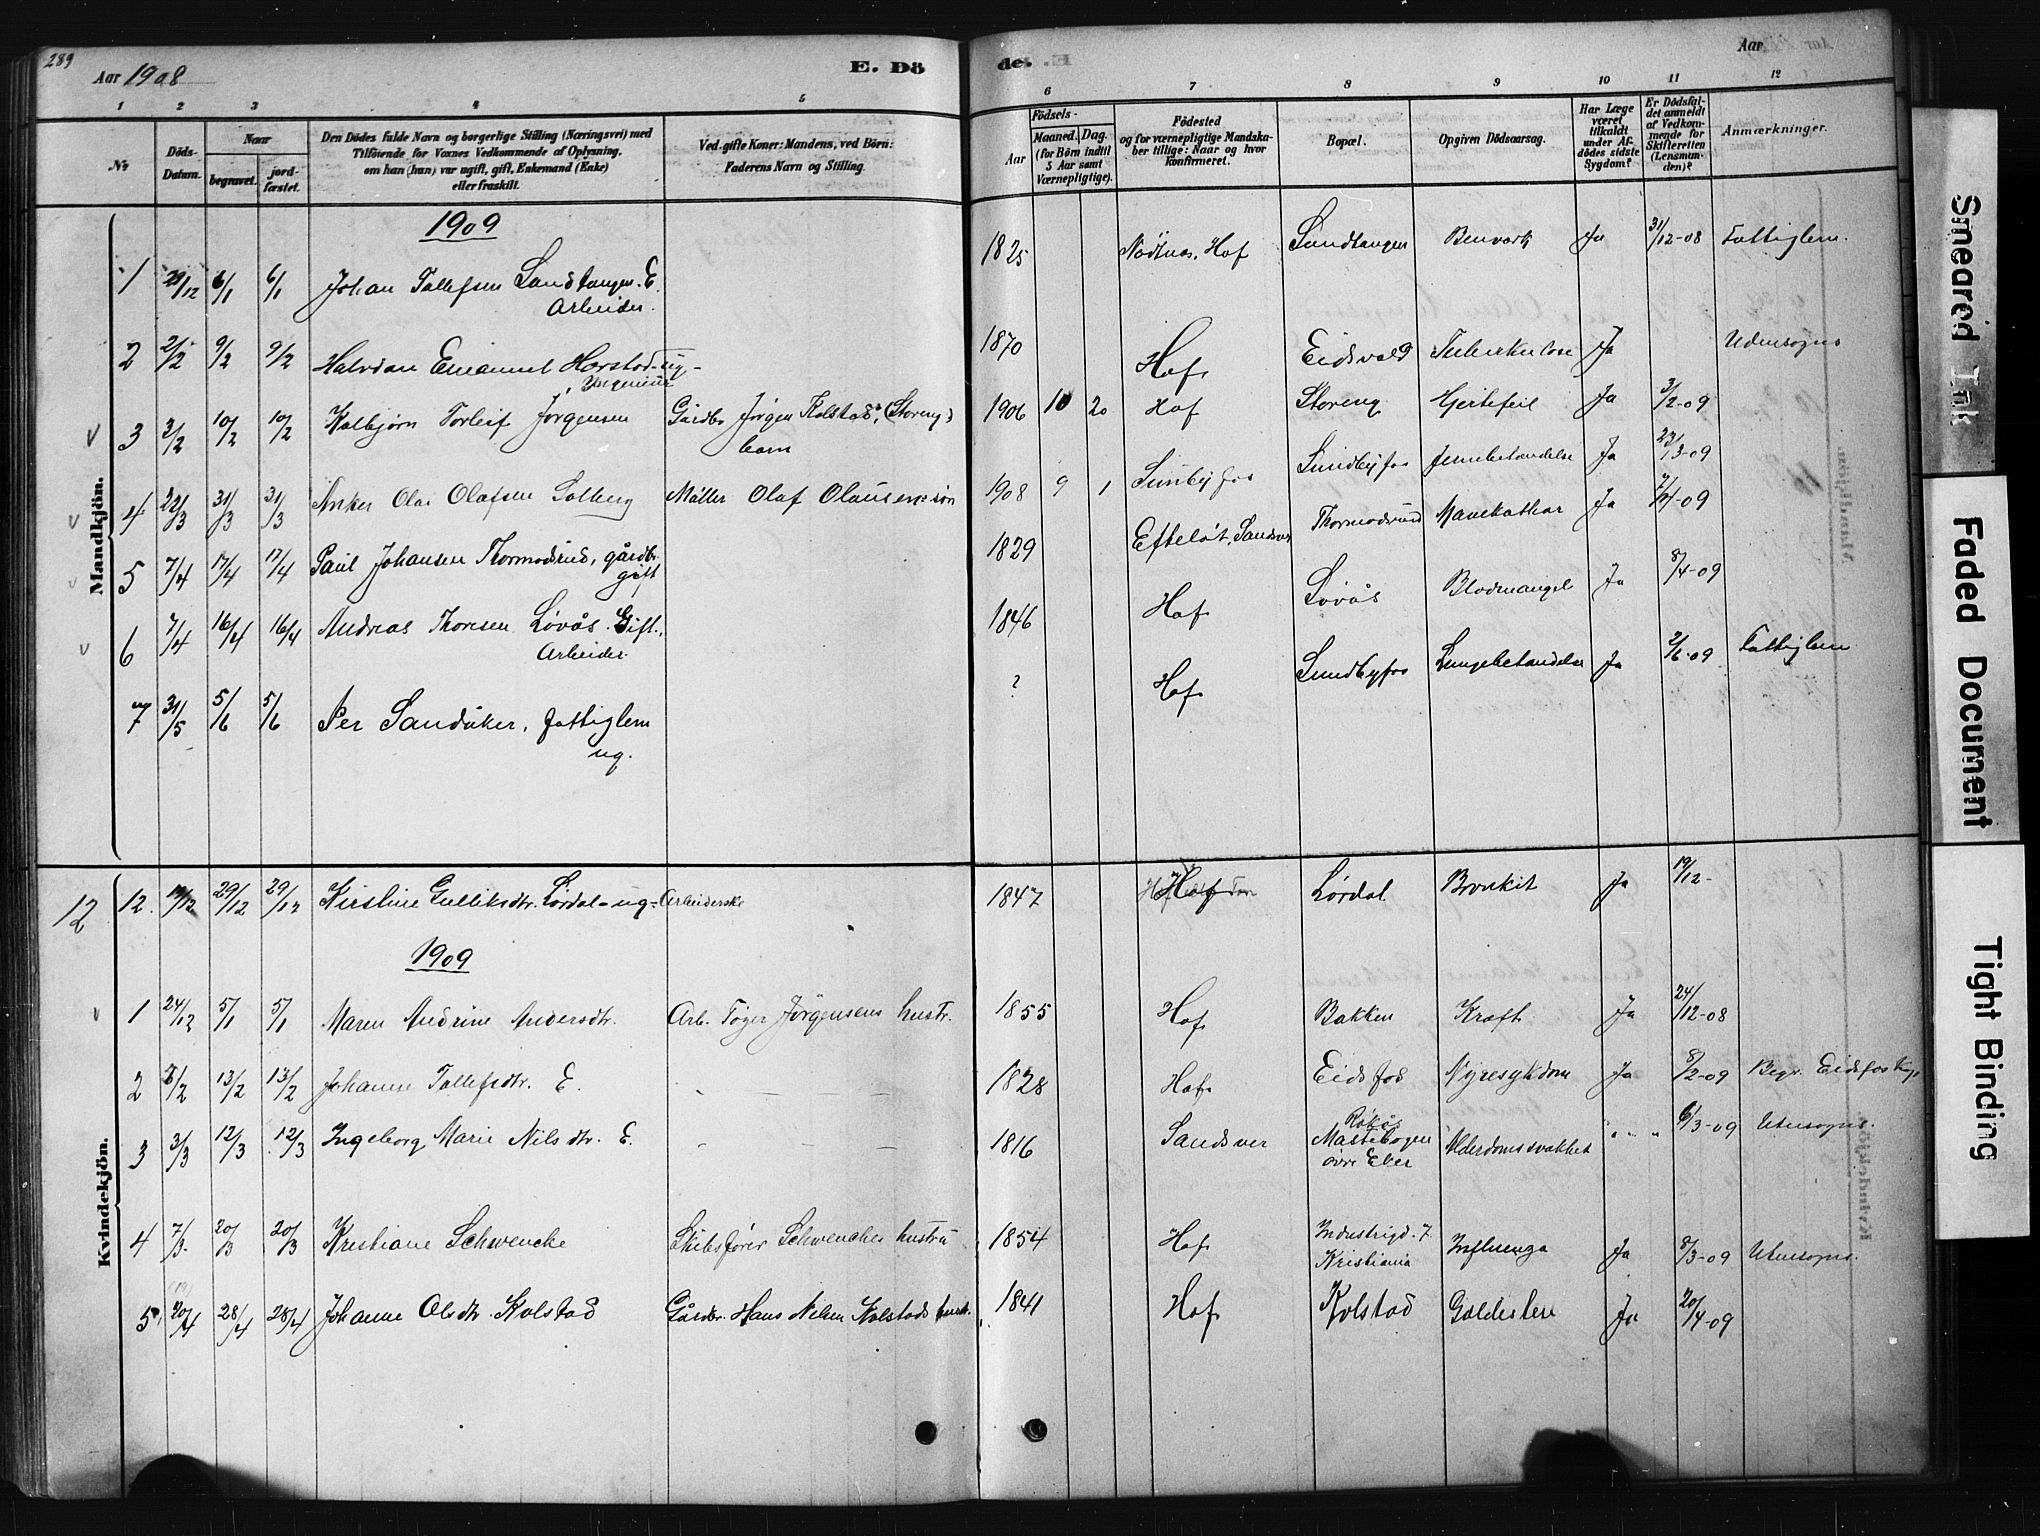 289
Aar 1908
E. Dö
de.
Aar
1 2 3 4 5 6 7 8 9 10 11 12
No
Döds-Datum.
Naar
begravet.
jord-fæstet.
Den Dödes fulde Navn og borgerlige Stilling (Næringsvei) med
Tilföiende for Voxnes Vedkommende af Oplysning,
om han (hun) var ugift, gift, Enkemand (Enke)
eller fraskilt.
Ved gifte Koner: Mandens, ved Börn:
Faderens Navn og Stilling.
Födsels-
Aar
Maaned. Dag.
(for Börn indtil
5 Aar samt
Værnepligtige).
Födested
og for værnepligtige Mandska-
ber tillige: Naar og hvor
Konfirmeret.
Bopæl.
Opgiven Dödsaarsag.
Har Læge
været
tilkaldt
under Af-
dödes sidste
Sygdom?
Er Dödsfal-
det anmeldt
af Vedkom-
mende for
Skifteretten
(Lensman-
den)?
Anmærkninger.
Mandkjön.
1909
1 29/12 6/1 6/1 Johan Tollefsen Sandtangen. E. Arbeider. 1825 Nödtnes, Hof Sandtangen Benverk Ja 31/12-08 Fattiglem.
2 2/2 9/2 9/2 Halvdan Emanuel Horstad - ug - Ingeniør 1870 Hof Eidsvold Tuberkulose Ja Udensogns
3 3/2 10/2 10/2 Kolbjørn Torleif Jørgensen Gårdbr Jørgen Kolstad's (Storeng) barn 1906 10 20 Hof Storeng Hjertefeil Ja 3/2-09
4 22/3 31/3 31/3 Anker Olai Olafsen Solberg Møller Olaf Olausens søn 1908 9 1 Sunbyfos Sundbyfos Ja 23/3-09
5 7/4 17/4 17/4 Paul Johansen Thormodsrud, gårdbr. gift 1829 Efteløt, Sandsver Thormodsrud Mavekathar Ja 7/4-09
6 7/4 16/4 16/4 Andreas Thoresen Løvås. Gift., Arbeider. 1846 Hof Løvås Blodmangel Ja 8/4-09
7 31/5 5/6 5/6 Per Sandåker, fattiglem ug. ? Hof Sundbyfos Lungebetændelse Ja 2/6-09 Fattiglem
Kvindekjön.
12 12. 19/12 29/12 29/12 Kirstine Gulliksdtr. Lørdal - ug - Arbeiderske 1847 Hof Lørdal Bronkit Ja 19/12-
1909
1 24/12 5/1 5/1 Maren Andrine Andersdtr. Arb. Tøger Jørgensens hustr. 1855 Hof Bakken Kræft Ja 24/12-08
2 6/2 13/2 13/2 Johanne Tollefsdtr. E. 1828 Hof Eidsfos Nyresykdom Ja 8/2-09 Begr. Eidsfos
3 3/3 12/3 12/3 Ingeborg Marie Nilsdtr. E. 1816 Sandsver Mastebogen øvre Eker Alderdomssvakhet 6/3-09 Utensogns.
4 7/3 20/3 20/3 Kristiane Schwencke Skibsfører Schwenckes hustru 1854 Hof Industrigd. 7 Kristiania Influenza Ja 8/3-09 Utensogns.
5 20/4 28/4 28/4 Johanne Olsdtr. Kolstad Gårdbr. Hans Nilsen Kolstads hustr. 1841 Hof Kolstad Galdesten Ja 20/4-09
Smeared Ink
Faded Document
Tight Binding